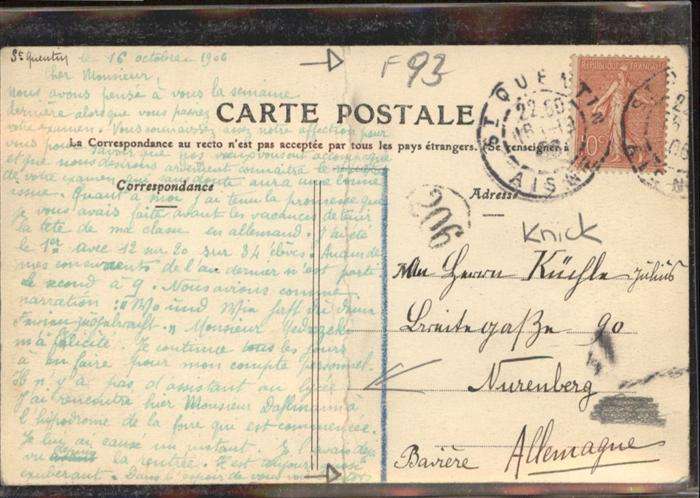 St Quentin, le 16 octobre 1906
Cher Monsieur,
Nous avons pensé à vous la semaine
dernière alorsque vous passiez
votre examen. Vous connaissez assez notre affection pour
vous pour savoir que nos vœux vous ont accompagné
et que nous désirons ardemment connaître le résultat
de votre examen qui sans doute aura une bonne
issue. Quant à moi j'ai tenu la promesse que
je vous avais faite avant les vacances de tenir
la tête de ma classe en allemand. J'ai été
le 1er avec 12 sur 20 sur 34 élèves. Aucun de
mes concurrents de l'an dernier n'est porté.
Le second a 9. Nous avions comme
narration : "Wo und Wie hast du deine
" Monsieur
m'a félicité. Je continue tous les jours
à en faire pour mon compte personnel.
Il n'y a pas d'assistant au lycée
J'ai rencontré hier Monsieur à
l'hippodrome de la foire qui est commencée.
Je lui ai causé un instant. Je l'avais déjà
vu depuis la rentrée. Il est toujours aussi
exubérant. Dans l'espoir de vous
F 93
CARTE POSTALE
La Correspondance au recto n'est pas acceptée par tous les pays étrangers. (Se renseigner à
Correspondance
Adresse
ST QUENTIN
22 30
16
AISNE
RÉPUBLIQUE FRANÇAISE
10c
206
Knick
An Herrn Küchle Julius
Breitegaße 90
Nurenberg
Bavière Allemagne